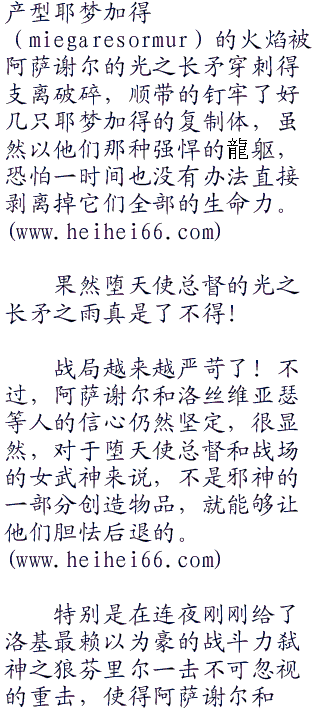 产型耶梦加得
（miegaresormur）的火焰被
阿萨谢尔的光之长矛穿刺得
支离破碎，顺带的钉牢了好
几只耶梦加得的复制体，虽
然以他们那种强悍的龍躯，
恐怕一时间也没有办法直接
剥离掉它们全部的生命力。
(www.heihei66.com)
果然堕天使总督的光之
长矛之雨真是了不得！
战局越来越严苛了！不
过，阿萨谢尔和洛丝维亚瑟
等人的信心仍然坚定，很显
然，对于堕天使总督和战场
的女武神来说，不是邪神的
一部分创造物品，就能够让
他们胆怯后退的。
(www.heihei66.com)
特别是在连夜刚刚给了
洛基最赖以为豪的战斗力弑
神之狼芬里尔一击不可忽视
的重击，使得阿萨谢尔和